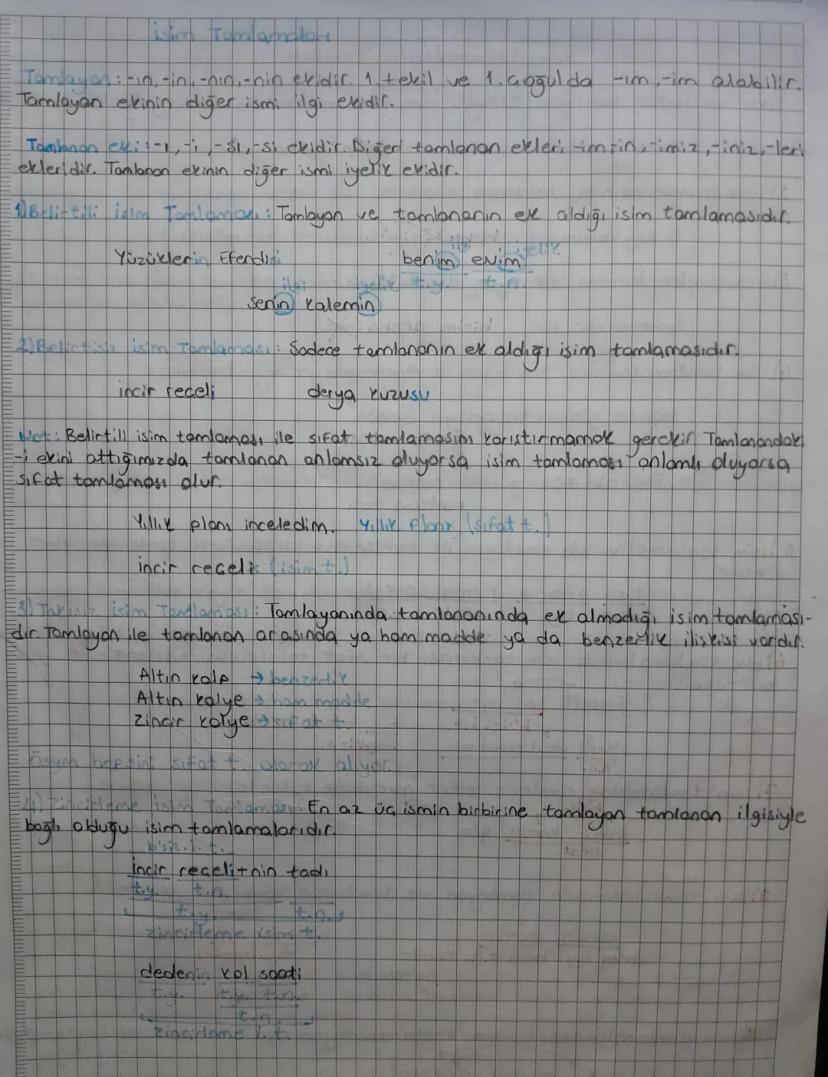 isim Tamlamaları
Tamlayan: -ın, -in, -nın, -nin ekidir. 1. tekil ve 1. çoğulda -ım, -im alabilir.
Tamlayan ekinin diğer ismi ilgi ekidir.
Tamlanan eki: -ı, -i, -sı, -si ekidir. Diğer tamlanan ekleri -im, -in, -imiz, -iniz, -leri
ekleridir. Tamlanan ekinin diğer ismi iyelik ekidir.
1) Belirtili isim Tamlaması: Tamlayan ve tamlananın ek aldığı isim tamlamasıdır.
ilgi iyelik
Yüzüklerin Efendisi benim evim
ilgi iyelik t.y. t.n
senin kalemin
2) Belirtisiz isim Tamlaması: Sadece tamlananın ek aldığı isim tamlamasıdır.
incir reçeli derya kuzusu
Not: Belirtili isim tamlaması ile sıfat tamlamasını karıştırmamak gerekir. Tamlanandaki
-i ekini attığımızda tamlanan anlamsız oluyorsa isim tamlaması anlamlı oluyorsa
sıfat tamlaması olur.
Yıllık planı inceledim. Yıllık plan (sıfat t.)
incir reçeli (isim t.)
3) Takısız isim Tamlaması: Tamlayanında tamlananında ek almadığı isim tamlaması-
dır. Tamlayan ile tamlanan arasında ya ham madde ya da benzerlik ilişkisi vardır.
Altın kalp → benzerlik
Altın kolye → ham madde
Zincir kolye → sıfat t.
Ösym hepsini sıfat t. olarak alıyor.
4) Zincirleme isim Tamlaması: En az üç ismin birbirine tamlayan tamlanan ilgisiyle
bağlı olduğu isim tamlamalarıdır.
b'siz. i. t.
incir reçeli+nin tadı
t.y. t.n.
t.y. t.n.
zincirleme isim t.
dedenin kol saati
t.y. t.y. t.n.
t.n.
zincirleme i. t.